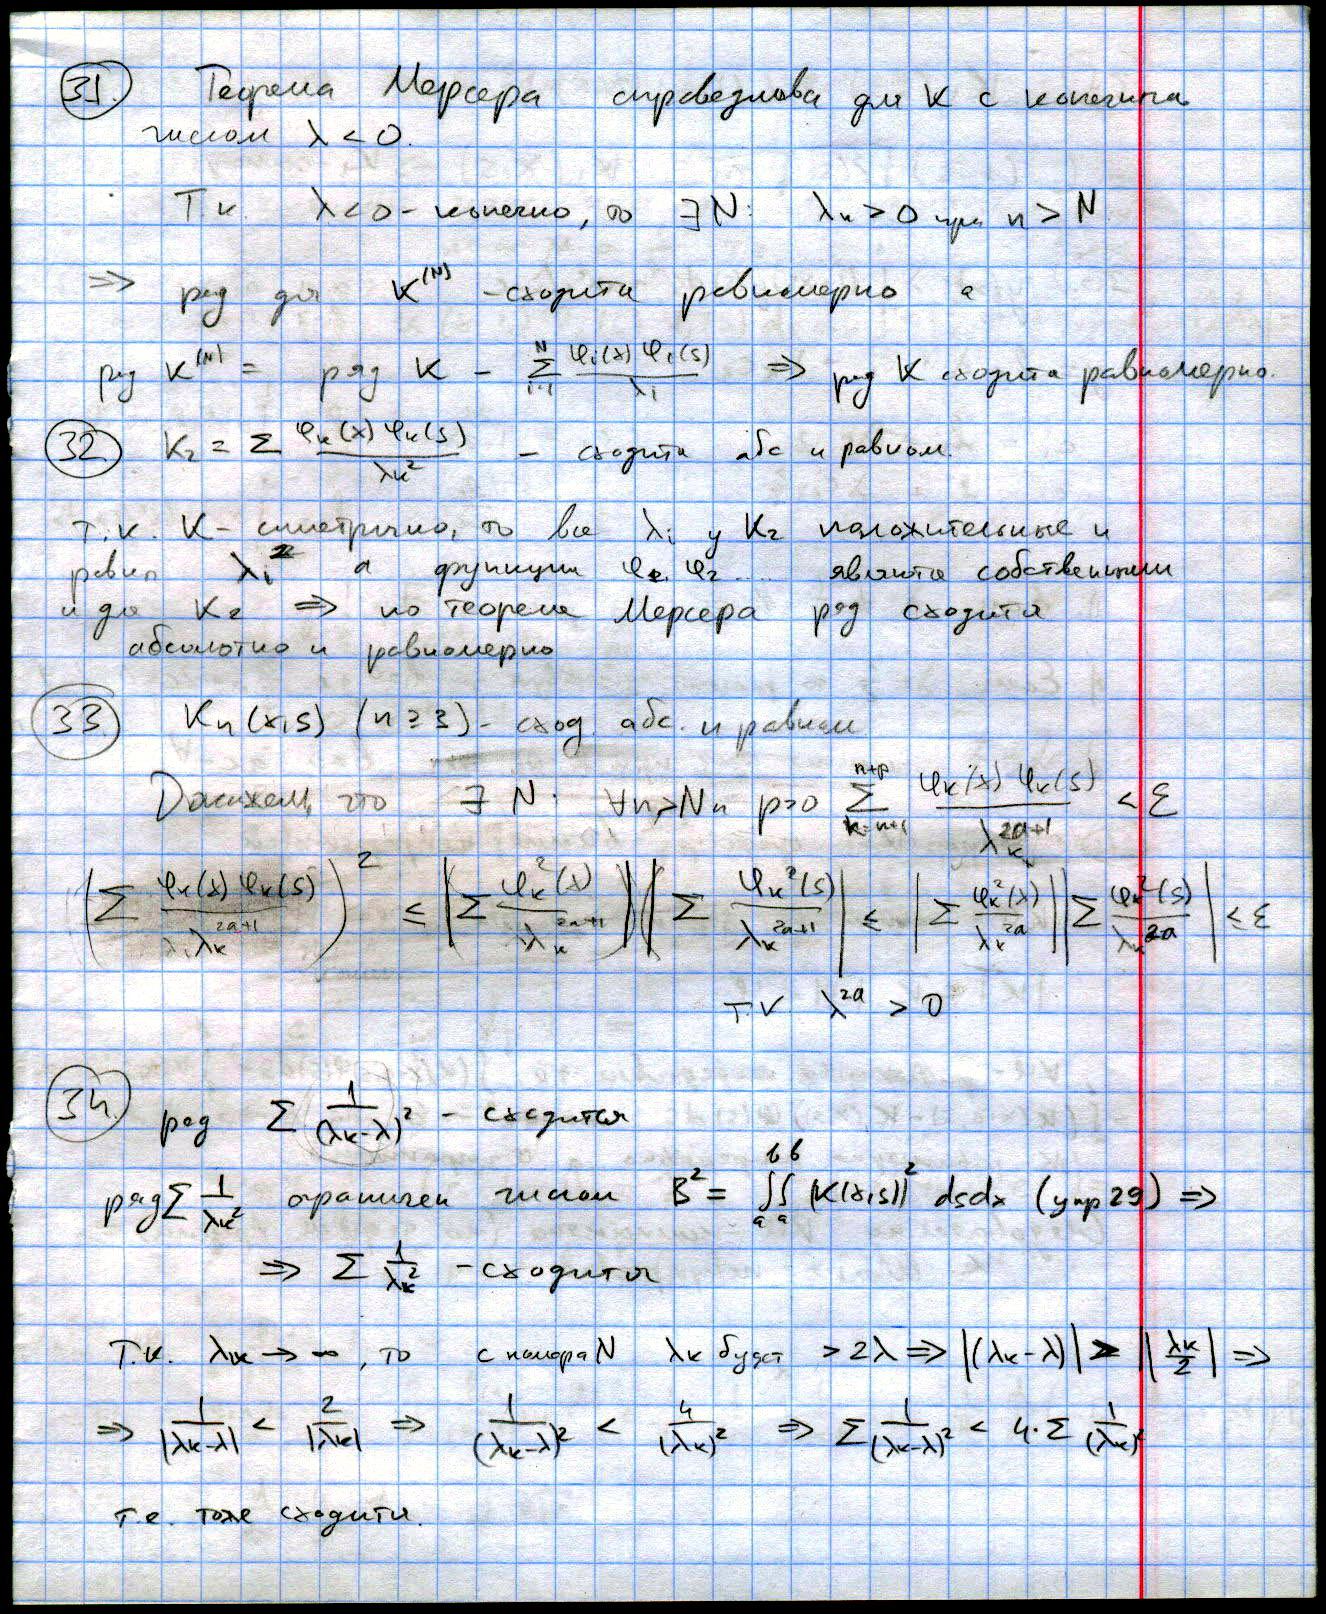 31. Теорема Мерсера справедлива для K с конечным
числом λ < 0.
Т.к. λ<0 - конечно, то ∃ N: λₙ > 0 при n > N
⇒ ряд для K^(N) - сходится равномерно а
ряд K^(N) = ряд K - ∑_{i=1}^{N} φᵢ(x) φᵢ(s) / λᵢ ⇒ ряд K сходится равномерно.
32 K₂ = ∑ φₖ(x) φₖ(s) / λₖ² - сходится абс и равном.
т.к. K - симетрично, то все λᵢ у K₂ положительные и
равны λᵢ² а функции φ₁ φ₂ .... являются собственными
и для K₂ ⇒ по теореме Мерсера ряд сходится
абсолютно и равномерно
33 Kₙ(x,s) (n ≥ 3) - сход. абс. и равном
Докажем, что ∃ N: ∀n>N и p>0 ∑_{k=n+1}^{n+p} φₖ(x) φₖ(s) / λₖ^{2a+1} < ε
(∑ φₖ(x) φₖ(s) / λₖ^{2a+1})² ≤ |∑ φₖ²(x) / λₖ^{2a+1}| |∑ φₖ²(s) / λₖ^{2a+1}| ≤ |∑ φₖ²(x) / λₖ^{2a}| |∑ φₖ²(s) / λₖ^{2a}| ≤ ε
т.к λ^{2a} > 0
34. ряд ∑ 1 / (λₖ-λ)² - сходится
ряд ∑ 1 / λₖ² ограничен числом B² = ∫ₐᵇ∫ₐᵇ |K(x,s)|² dsdx (упр 29) ⇒
⇒ ∑ 1 / λₖ² - сходится
Т.к. λₖ → ∞, то с номера N λₖ будет > 2λ ⇒ |(λₖ-λ)| > |λₖ / 2| ⇒
⇒ 1 / |λₖ-λ| < 2 / |λₖ| ⇒ 1 / (λₖ-λ)² < 4 / (λₖ)² ⇒ ∑ 1 / (λₖ-λ)² < 4·∑ 1 / (λₖ)²
т.е. тоже сходится.